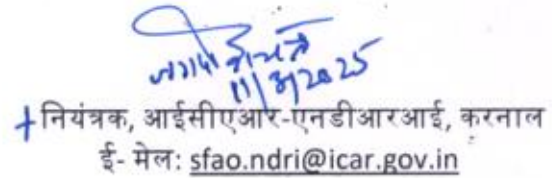 11/3/2025
नियंत्रक, आईसीएआर-एनडीआरआई, करनाल
ई- मेल: sfao.ndri@icar.gov.in